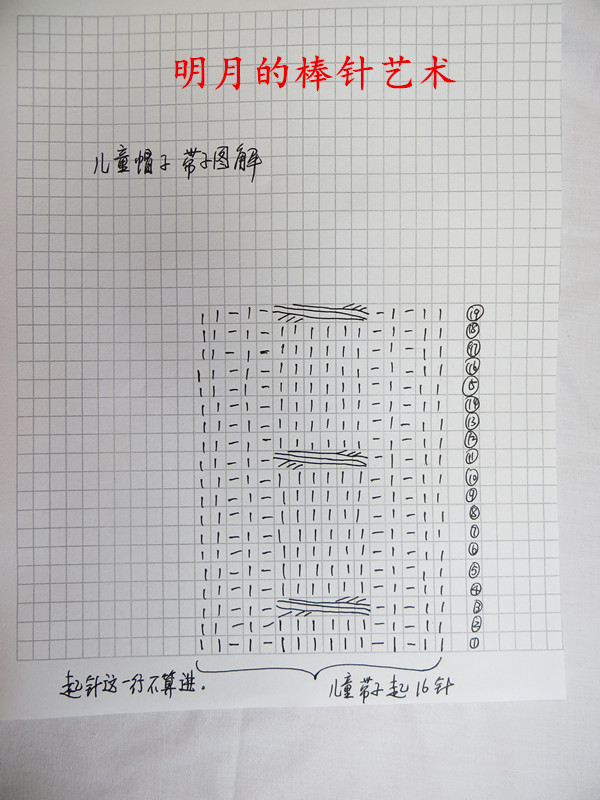 明月的棒针艺术
儿童帽子带子图解
⑲
⑱
⑰
⑯
⑮
⑭
⑬
⑫
⑪
⑩
⑨
⑧
⑦
⑥
⑤
④
③
②
①
起针这一行不算进。
儿童带子起16针